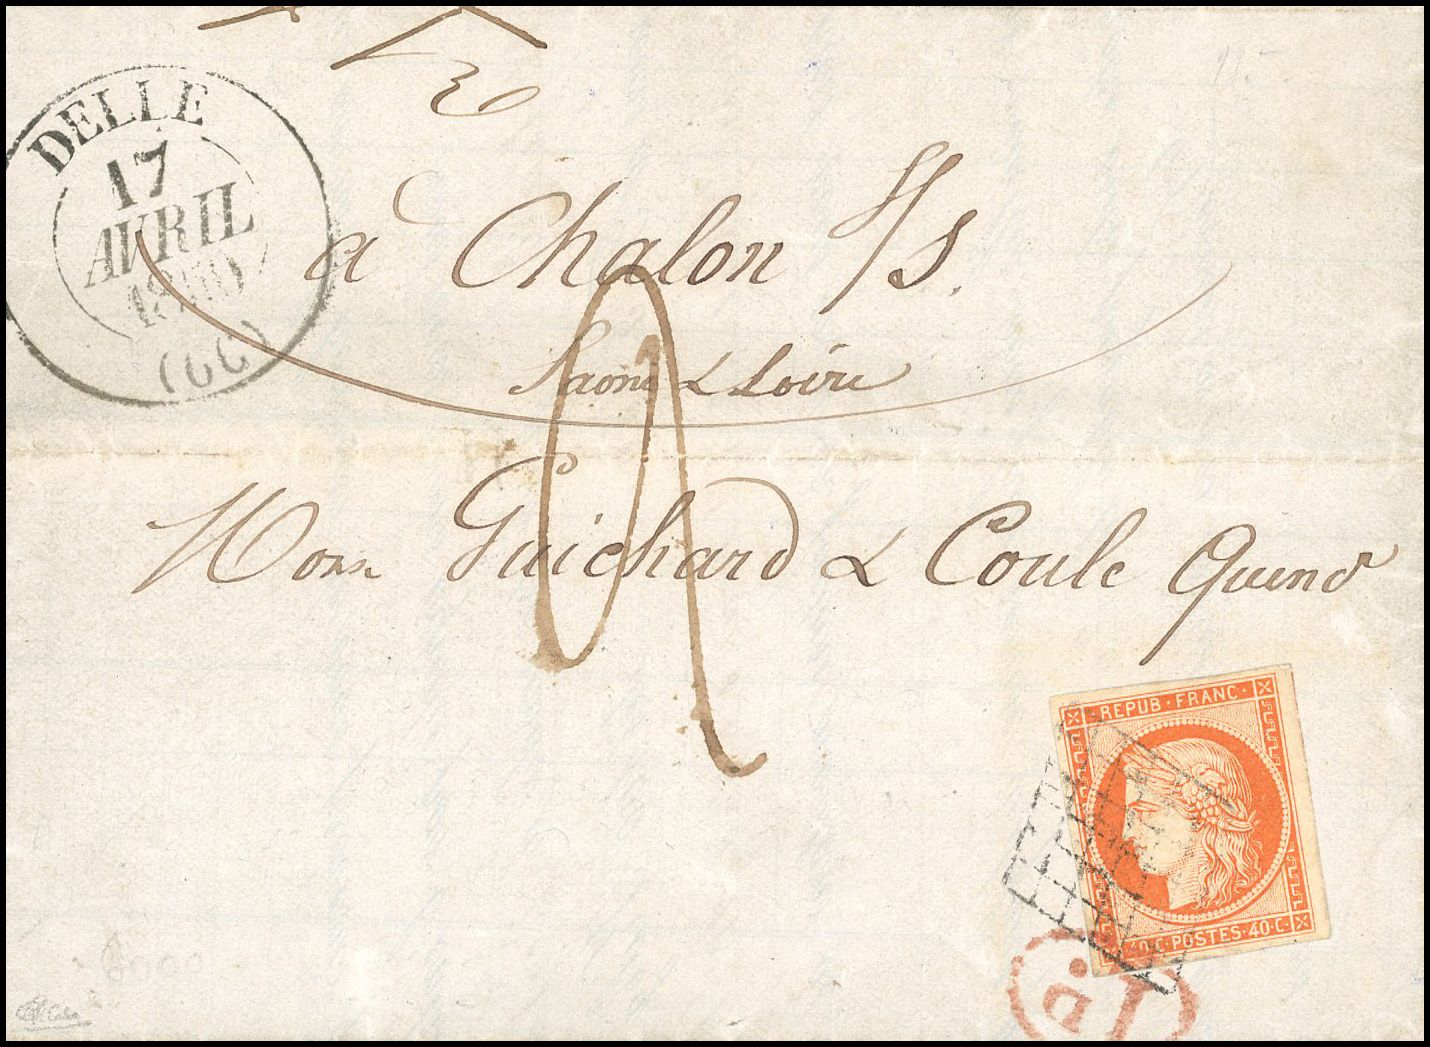 DELLE
17
AVRIL
(66)
à Chalon s/s.
Saone & Loire
Mons Guichard & Coule Quend
REPUB · FRANC ·
40·C· POSTES ·40·C·
P.P.